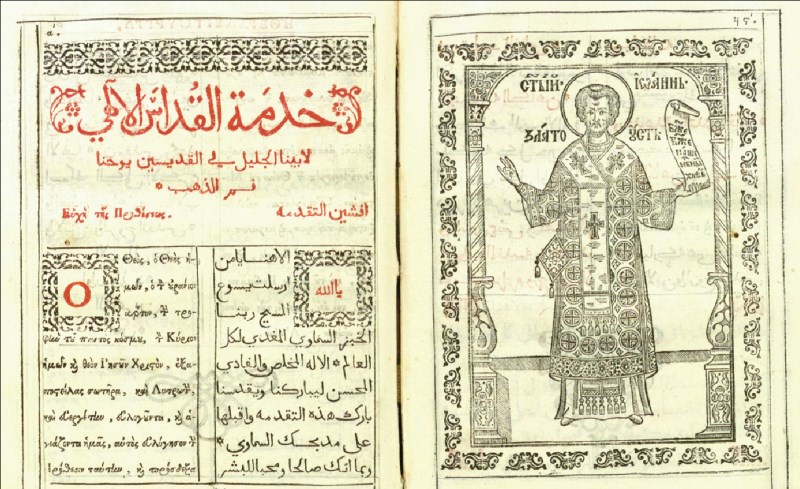 α.
خدمة القداس الالهي
لابينا الجليل في القديسين يوحنا
فم الذهب *
Εὐχὴ τῆς Προθέσεως. افشين التقدمة
Ο Θεὸς, ὁ Θεὸς ἡ-
μῶν, ὁ τ̀ οὐράνιον
ἄρτον, τ̀ τρο-
φὴν τοῦ παντὸς κόσμου, τ̀ Κύριον
ἡμῶν κ̀ Θεὸν Ἰησοῦν Χριστὸν, ἐξα-
ποστείλας σωτῆρα, καὶ Λυτρωτ̀,
καὶ εὐεργέτην, εὐλογοῦντα, κ̀ ἁ-
γιάζοντα ἡμᾶς, αὐτὸς εὐλόγησον τ̀
πρόθεσιν ταύτην, κ̀ πρόσδεξαι
يا الله الاهنا يا من
ارسلت يسوع
المسيح ربنا
الخبز السماوي المغذي لكل
العالم * الاله المخلص والفادي
المحسن ليباركنا ويقدسنا
بارك هذه التقدمه واقبلها
على مذبحك السماوي *
وبما انك صالحا ومحبا للبشر
СТЫЙ ІѠАННЬ
ЗЛАТО УСТЬ